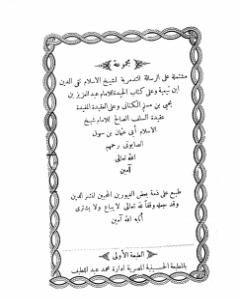 مجموعة
مشتملة على الرسالة التدمرية للشيخ الاسلام تقى الدين
ابن تيمية وعلى كتاب الحيدة للامام عبد العزيز بن
يحيى بن مسلم الكنانى وعلى العقيدة المفيدة
عقيدة السلف الصالح للامام شيخ
الاسلام أبى عثمان بن
الصابونى رحمهم
الله تعالى
آمين
طبع على ذمة بعض الغيورين المحبين لنشر الدين
وقد جعله وقفا لله تعالى لا يباع ولا يشترى
أثابه الله آمين
الطبعة الأولى
بالمطبعة الحسينية المصرية ادارة محمد عبد اللطيف